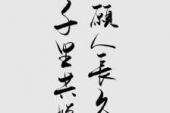 願人長久
千里共